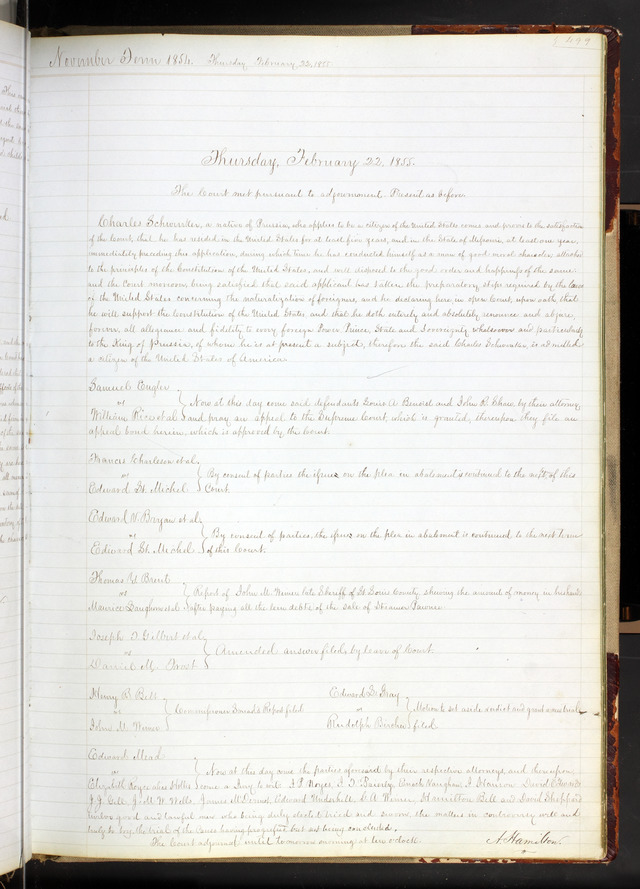 499
November Term 1854. Thursday, February, 22, 1855.
Thursday, February 22, 1855.
The Court met pursuant to adjournment. Present as before
Charles Schwinker, a native of Prussia, who applies to be a citizen of the United States comes and proves to the satisfaction
of the Court, that he has resided in the United States for at least five years, and in the State of Missouri, at least one year,
immediately preceding this application, during which time he has conducted himself as a man of good moral character, attached
to the principles of the Constitution of the United States, and well disposed to the good order and happiness of the same;
and the Court moreover, being satisfied that said applicant has taken the preparatory steps required by the laws
of the United States concerning the naturalization of foreigners, and he declaring here, in open Court, upon oath, that
he will support the Constitution of the United States, and that he doth entirely and absolutely renounce and abjure,
forever, all allegiance and fidelity to every foreign Power, Prince, State and Sovereignty whatsoever and particularly
to the King of Prussia, of whom he is at present a subject, therefore the said Charles Schwinker, is admitted
a citizen of the United States of America.
Samuel Engler
vs
Now at this day come said defendants Louis A Benoist and John R. Chase, by their attorney
William Rice et al and pray an appeal to the Supreme Court, which is granted; thereupon they file an
appeal bond herein, which is approved by the Court.
Francis Charleson et al,
vs By consent of parties the issue on the plea in abatement is continued to the next of this
Edward St. Michel Court.
Edward W. Bryan et al,
vs By consent of parties, the issue on the plea in abatement is continued to the next term
Edward St. Michel of this Court.
Thomas Brent
vs Report of John M. Wimer late Sheriff of St Louis County, showing the amount of money in his hands
Maurice after paying all the debts of the sale of Steamer Pawnee
Joseph T Gilbert et al,
vs Amended answer filed, by leave of Court.
Daniel M. Frost
Henry B Belt
vs Commissioners Report filed
John M. Wimer
Edward Gray
vs Motion to set aside verdict and grant a new trial
Randolph filed.
Edward Mead
vs Now at this day come the parties aforesaid by their respective attorneys, and thereupon
Elizabeth alias come a Jury to wit: Noyes, Enoch Vaughan, Harrison David Edwards
J. J. M. W. Wells, James McDermot, Edward Underhill, Hamilton Bell and David Sheppard
twelve good and lawful men who being duly elected tried and sworn the matters in controversy well and
truly to try, the trial of the cause having progressed but not being concluded.
The Court adjourned until tomorrow morning at ten o'clock.
A. Hamilton.